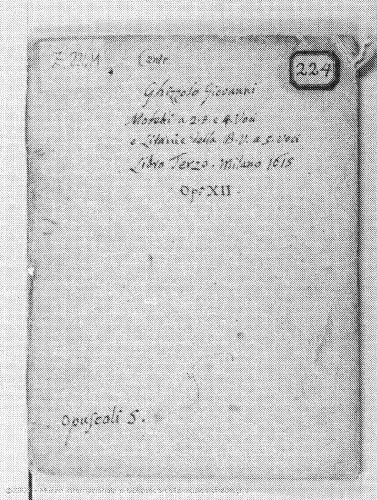 224
Ghizzolo Giovanni
Motetti a 2. 3. e 4. Voci
e Litanie della B. V. a 5. Voci
Libro Terzo. Milano 1615
Op: XII
Opuscoli 5.